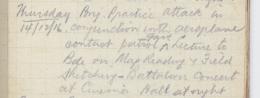 Thursday Brig. Practice attack in
14/12/16. conjunction with aeroplane
contact patrol. Lecture to
Bde on Map Reading & Field
Sketching - Battalion Concert
at Hall at night